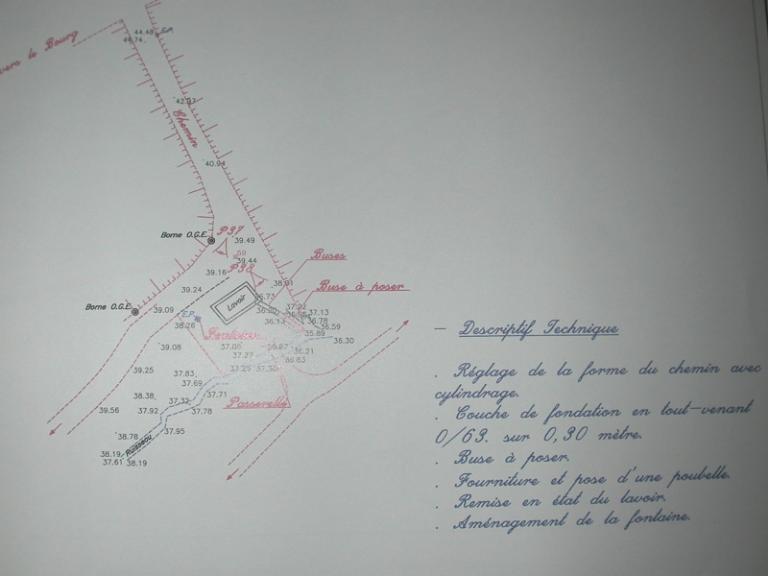 vers le Bourg
44.48
44.74
42.07
Chemin
40.94
Borne O.G.E.
P37
39.49
39.44
P38
39.16
Buses
39.24
38.01
Buse à poser
Borne O.G.E.
39.09
Lavoir
E.P.
38.26
37.13
36.78
36.59
35.89
36.30
39.08
37.27
36.21
36.83
39.25
37.83
37.69
38.38
37.32
37.71
Passerelle
39.56
37.92
37.78
38.78
37.95
Ruisseau
38.19
37.61
38.19
— Descriptif Technique
. Réglage de la forme du chemin avec
cylindrage.
. Couche de fondation en tout-venant
0/63. sur 0,30 mètre.
. Buse à poser.
. Fourniture et pose d'une poubelle.
. Remise en état du lavoir.
. Aménagement de la fontaine.